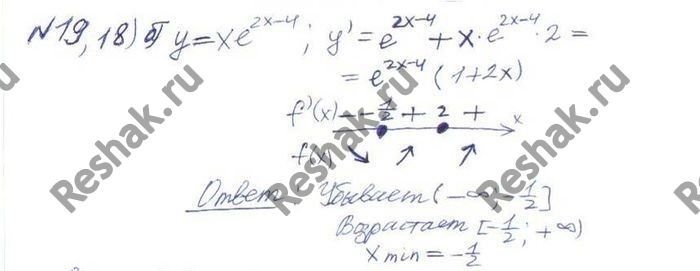 №19,18) б) y=xe^{2x-4}; y'=e^{2x-4}+x·e^{2x-4}·2=
=e^{2x-4}(1+2x)
f'(x) - -1/2 + 2 + x
f(x) ↘ ↗ ↗
Ответ: Убывает (-∞; -1/2]
Возрастает [-1/2; +∞)
x min = -1/2
Reshak.ru
Reshak.ru
Reshak.ru
Reshak.ru